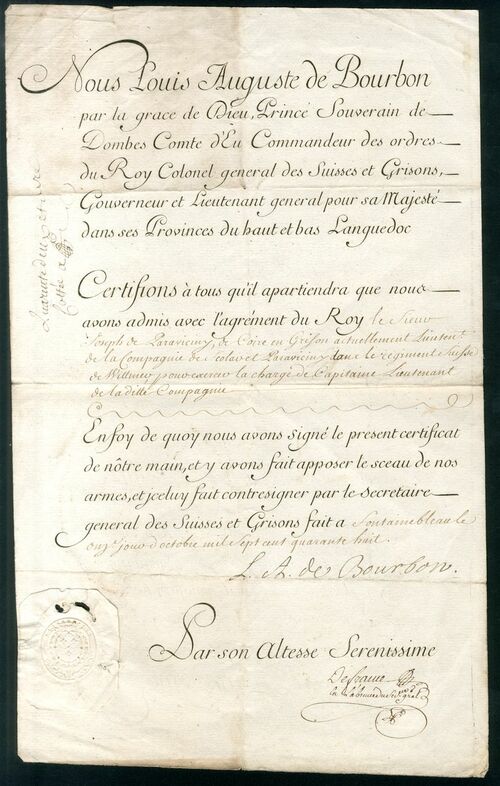 Nous Louis Auguste de Bourbon
par la grace de Dieu, Prince Souverain de
Dombes Comte d'Eu Commandeur des ordres
du Roy Colonel general des Suisses et Grisons,
Gouverneur et Lieutenant general pour sa Majesté
dans ses Provinces du haut et bas Languedoc
Certifions à tous qu'il apartiendra que nous
avons admis avec l'agrément du Roy le Sieur
Joseph de Paraviciny, de Coire en Grison actuellement Lieutent
de la Compagnie de et Paraviciny dans le regiment Suisse
de Wittmer, pour exercer la charge de Capitaine Lieutenant
de la ditte Compagnie
En foy de quoy nous avons signé le present certificat
de nôtre main, et y avons fait apposer le sceau de nos
armes, et jceluy fait contresigner par le secretaire
general des Suisses et Grisons fait a Fontainebleau le
onze jour d'octobre mil sept cent quarante huit.
L. A. de Bourbon.
Par son Altesse Serenissime